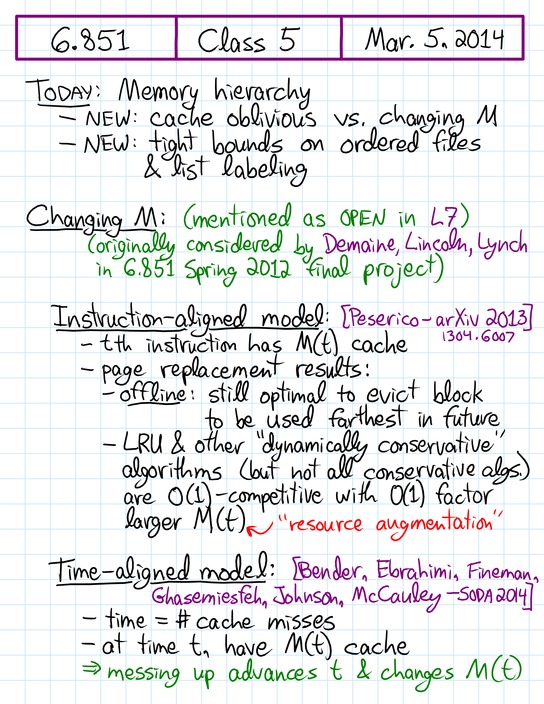 6.851 Class 5 Mar. 5, 2014
TODAY: Memory hierarchy
– NEW: cache oblivious vs. changing M
– NEW: tight bounds on ordered files
& list labeling
Changing M: (mentioned as OPEN in L7)
(originally considered by Demaine, Lincoln, Lynch
in 6.851 Spring 2012 final project)
Instruction-aligned model: [Peserico – arXiv 2013]
1304.6007
– tth instruction has M(t) cache
– page replacement results:
– offline: still optimal to evict block
to be used farthest in future
– LRU & other "dynamically conservative"
algorithms (but not all conservative algs.)
are O(1)-competitive with O(1) factor
larger M(t) ← "resource augmentation"
Time-aligned model: [Bender, Ebrahimi, Fineman,
Ghasemiesfeh, Johnson, McCauley – SODA 2014]
– time = # cache misses
– at time t, have M(t) cache
⇒ messing up advances t & changes M(t)